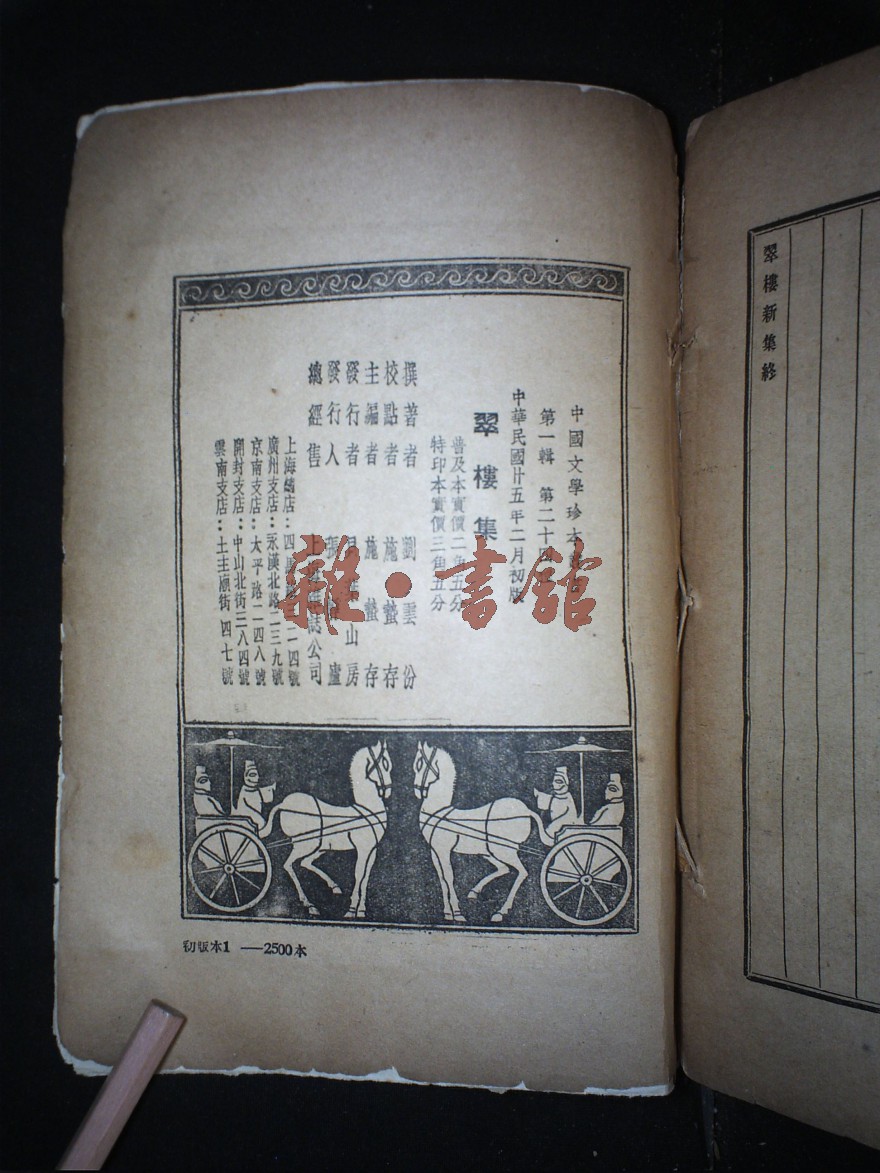 中國文學珍本
第一輯 第二十四
中華民國廿五年二月初版
翠樓集
普及本實價二角五分
特印本實價三角五分
撰著者 劉雲份
校點者 施蟄存
主編者 施蟄存
發行者 山房
發行人 張 廬
總經售 上海雜誌公司
上海總店：四馬路三二四號
廣州支店：永漢北路二三九號
京南支店：太平路二四八號
開封支店：中山北街三八四號
雲南支店：土主廟街四七號
初版本1 —2500本
翠樓新集終
雜·書館